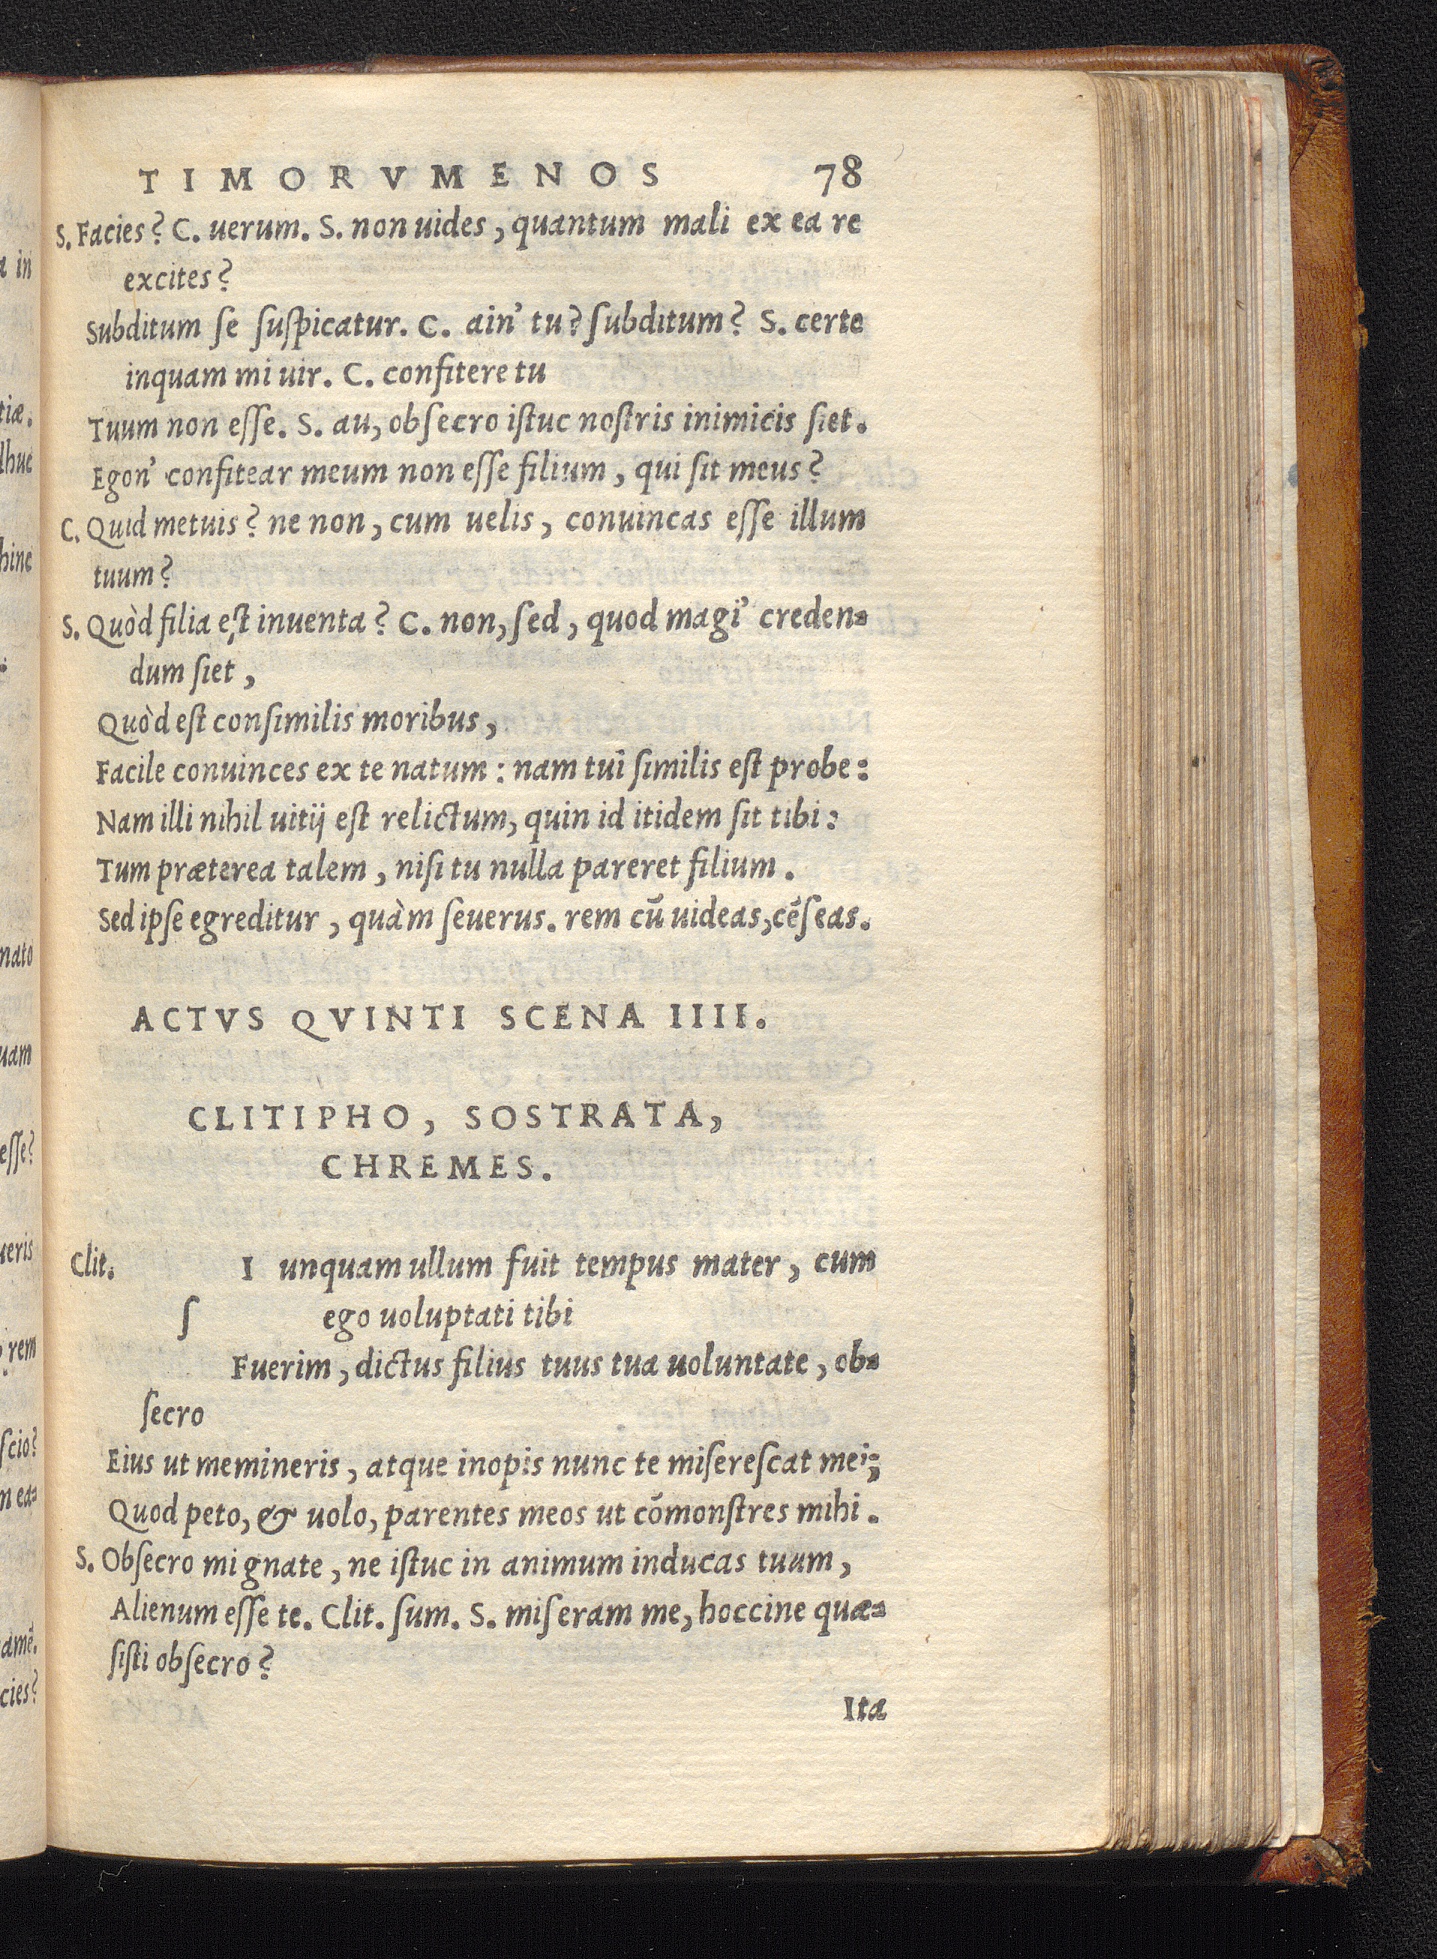 TIMORVMENOS 78
S. Facies? C. uerum. S. non uides, quantum mali ex ea re
excites?
Subditum se suspicatur. C. ain' tu? subditum? S. certe
inquam mi uir. C. confitere tu
Tuum non esse. S. au, obsecro istuc nostris inimicis siet.
Egon' confitear meum non esse filium, qui sit meus?
C. Quid metuis? ne non, cum uelis, conuincas esse illum
tuum?
S. Quòd filia est inuenta? C. non, sed, quod magi' creden-
dum siet,
Quòd est consimilis moribus,
Facile conuinces ex te natum: nam tui similis est probe:
Nam illi nihil uitij est relictum, quin id itidem sit tibi:
Tum præterea talem, nisi tu nulla pareret filium.
Sed ipse egreditur, quàm seuerus. rem cū uideas, cēseas.
ACTVS QVINTI SCENA IIII.
CLITIPHO, SOSTRATA,
CHREMES.
Clit. I unquam ullum fuit tempus mater, cum
s ego uoluptati tibi
Fuerim, dictus filius tuus tua uoluntate, ob-
secro
Eius ut memineris, atque inopis nunc te miserescat mei;
Quod peto, & uolo, parentes meos ut cōmonstres mihi.
S. Obsecro mi gnate, ne istuc in animum inducas tuum,
Alienum esse te. Clit. sum. S. miseram me, hoccine quæ-
sisti obsecro?
Ita
a in
tiæ.
dhuc
hinc
nato
uam
esse?
ueris
rem
scio?
n ea-
amē.
cies?